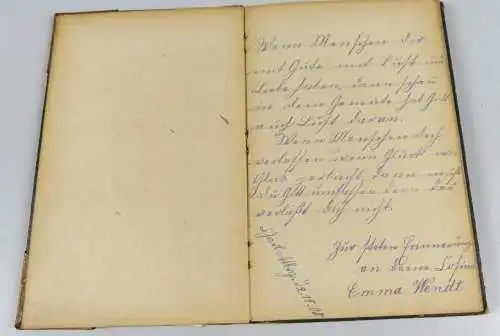 Wenn Menschen dir
mit Güte mit Lust und
Liebe haben, dann schau
in dein Gemüte hat Gott
auch Lust daran.
Wenn Menschen dich
verlassen wenn Glück wie
Glas zerbricht, dann mußt
du Gott umfassen denn der
verläßt dich nicht.
Zur steten Erinnerung
an deine Cosine
Emma Wendt